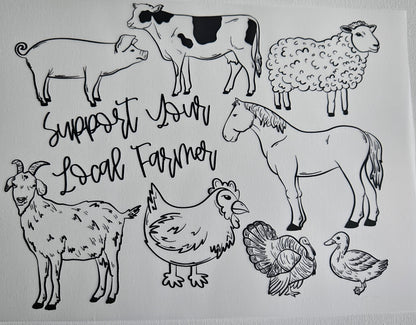 Support Your
Local Farmer